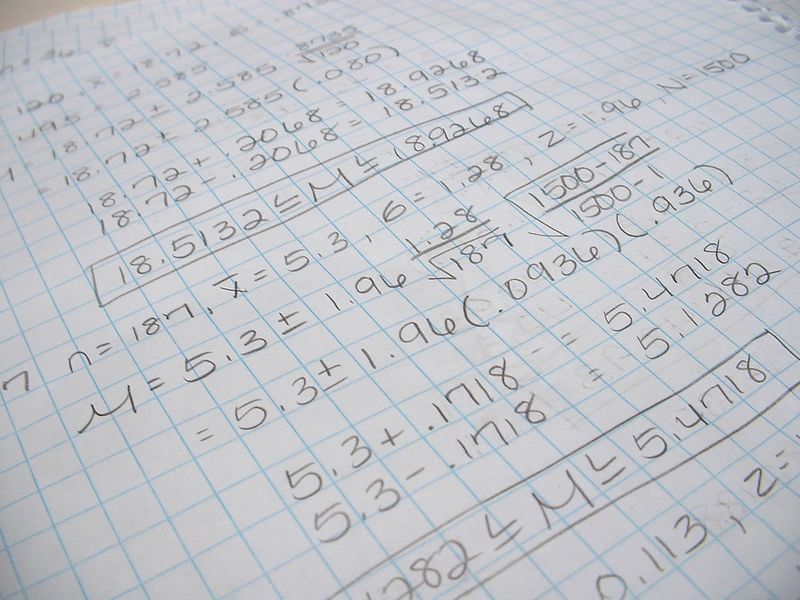 x̄ = 18.72, 6 = .873
120
.495 = 2.585
= 18.72 ± 2.585 .8735/√120
= 18.72 ± 2.585 (.080)
18.72 + .2068 = 18.9268
18.72 - .2068 = 18.5132
18.5132 ≤ M ≤ 18.9268
7 n = 187, x̄ = 5.3, 6 = 1.28, z = 1.96, N = 1500
M = 5.3 ± 1.96 1.28/√187 √1500-187/1500-1
= 5.3 ± 1.96 (.0936)(.936)
5.3 + .1718 = 5.4718
5.3 - .1718 = 5.1282
1282 ≤ M ≤ 5.4718
0.113, z =